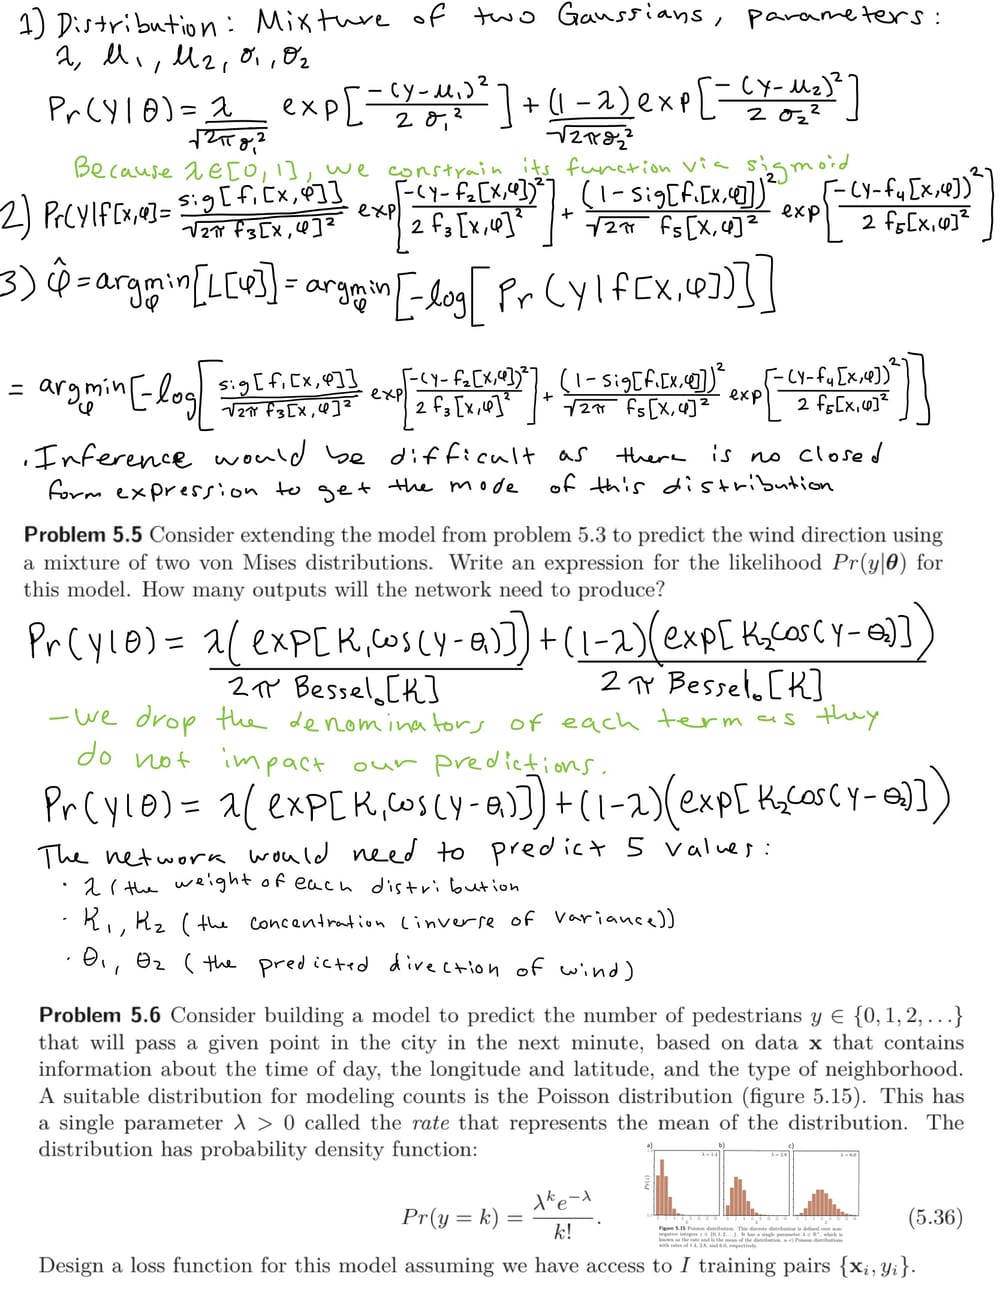 1) Distribution: Mixture of two Gaussians, parameters:
λ, μ₁, μ₂, σ₁, σ₂
Pr(y|θ) = λ/√(2πσ₁²) exp[-(y-μ₁)²/2σ₁²] + (1-λ)/√(2πσ₂²) exp[-(y-μ₂)²/2σ₂²]
Because λ∈[0,1], we constrain its function via sigmoid
2) Pr(y|f[x,φ]) = sig[f₁[x,φ]]/√2π f₃[x,φ]² exp[-(y-f₂[x,φ])²/2f₃[x,φ]²] + (1-sig[f₁[x,φ]])²/√2π f₅[x,φ]² exp[-(y-f₄[x,φ])²/2f₅[x,φ]²]
3) φ̂ = argmin_φ[L[φ]] = argmin_φ[-log[Pr(y|f[x,φ])]]
= argmin_φ[-log[sig[f₁[x,φ]]/√2π f₃[x,φ]² exp[-(y-f₂[x,φ])²/2f₃[x,φ]²] + (1-sig[f₁[x,φ]])²/√2π f₅[x,φ]² exp[-(y-f₄[x,φ])²/2f₅[x,φ]²]]]
. Inference would be difficult as there is no closed
form expression to get the mode of this distribution
Problem 5.5 Consider extending the model from problem 5.3 to predict the wind direction using
a mixture of two von Mises distributions. Write an expression for the likelihood Pr(y|θ) for
this model. How many outputs will the network need to produce?
Pr(y|θ) = λ(exp[K₁cos(y-θ₁)])/2π Bessel₀[K] + (1-λ)(exp[K₂cos(y-θ₂)])/2π Bessel₀[K]
-we drop the denominators of each term as they
do not impact our predictions.
Pr(y|θ) = λ(exp[K₁cos(y-θ₁)]) + (1-λ)(exp[K₂cos(y-θ₂)])
The network would need to predict 5 values:
· λ (the weight of each distribution
· K₁, K₂ (the concentration (inverse of variance))
· θ₁, θ₂ (the predicted direction of wind)
Problem 5.6 Consider building a model to predict the number of pedestrians y ∈ {0, 1, 2, . . .}
that will pass a given point in the city in the next minute, based on data x that contains
information about the time of day, the longitude and latitude, and the type of neighborhood.
A suitable distribution for modeling counts is the Poisson distribution (figure 5.15). This has
a single parameter λ > 0 called the rate that represents the mean of the distribution. The
distribution has probability density function:
a) b) c)
Pr(y = k) = λᵏe⁻λ/k! . (5.36)
Figure 5.15 Poisson distribution. This discrete distribution is defined over non-
negative integers z ∈ {0, 1, 2, . . .}. It has a single parameter λ ∈ ℝ⁺, which is
known as the rate and is the mean of the distribution. a-c) Poisson distributions
with rates of 1.4, 2.8, and 6.0, respectively.
Design a loss function for this model assuming we have access to I training pairs {xᵢ, yᵢ}.